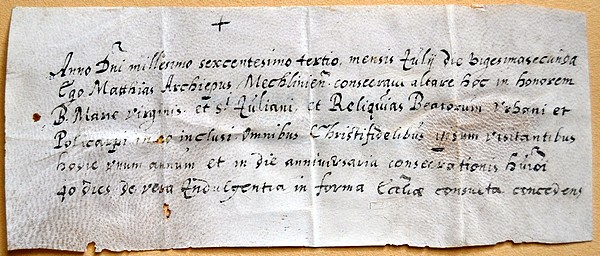 +
Anno Dñi millesimo sexcentesimo tertio, mensis Iulij die vigesimasecunda
Ego Matthias Archiepus, Mechlinieñ. consecraui altare hoc in honorem
B. Marie virginis et Sti Iuliani, et Reliquias Beatorum Vrbani et
Policarpi in eo inclusi omnibus Christifidelibus ipsum visitantibus
hodie vnum annum et in die anniversaria consecrationis huiõi
40 dies de vera Indulgentia in forma Eccliæ consueta concedens